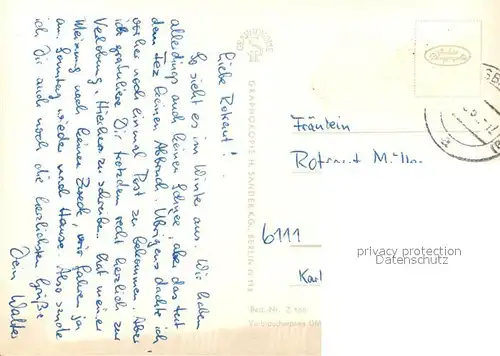 Liebe Rotraut!
So sieht es im Winter aus. Wir haben
allerdings auch keinen Schnee, aber das tut
dem keinen Abbruch. Übrigens dachte ich,
vorher noch einmal Post zu bekommen. Aber
ich gratuliere Dir trotzdem recht herzlich zur
Verlobung. Hierher zu schreiben hat meiner
Meinung nach keinen Zweck, wir fahren ja
am Sonntag wieder nach Hause. Also sende
ich Dir auch noch die herzlichsten Grüße
Dein Walter
GRAPHOKOPIE
GRAPHOKOPIE H. SANDER KG., BERLIN
Best.-Nr. Z
Verbraucherpreis
Fräulein
Rotraut
6111
privacy protection
Datenschutz